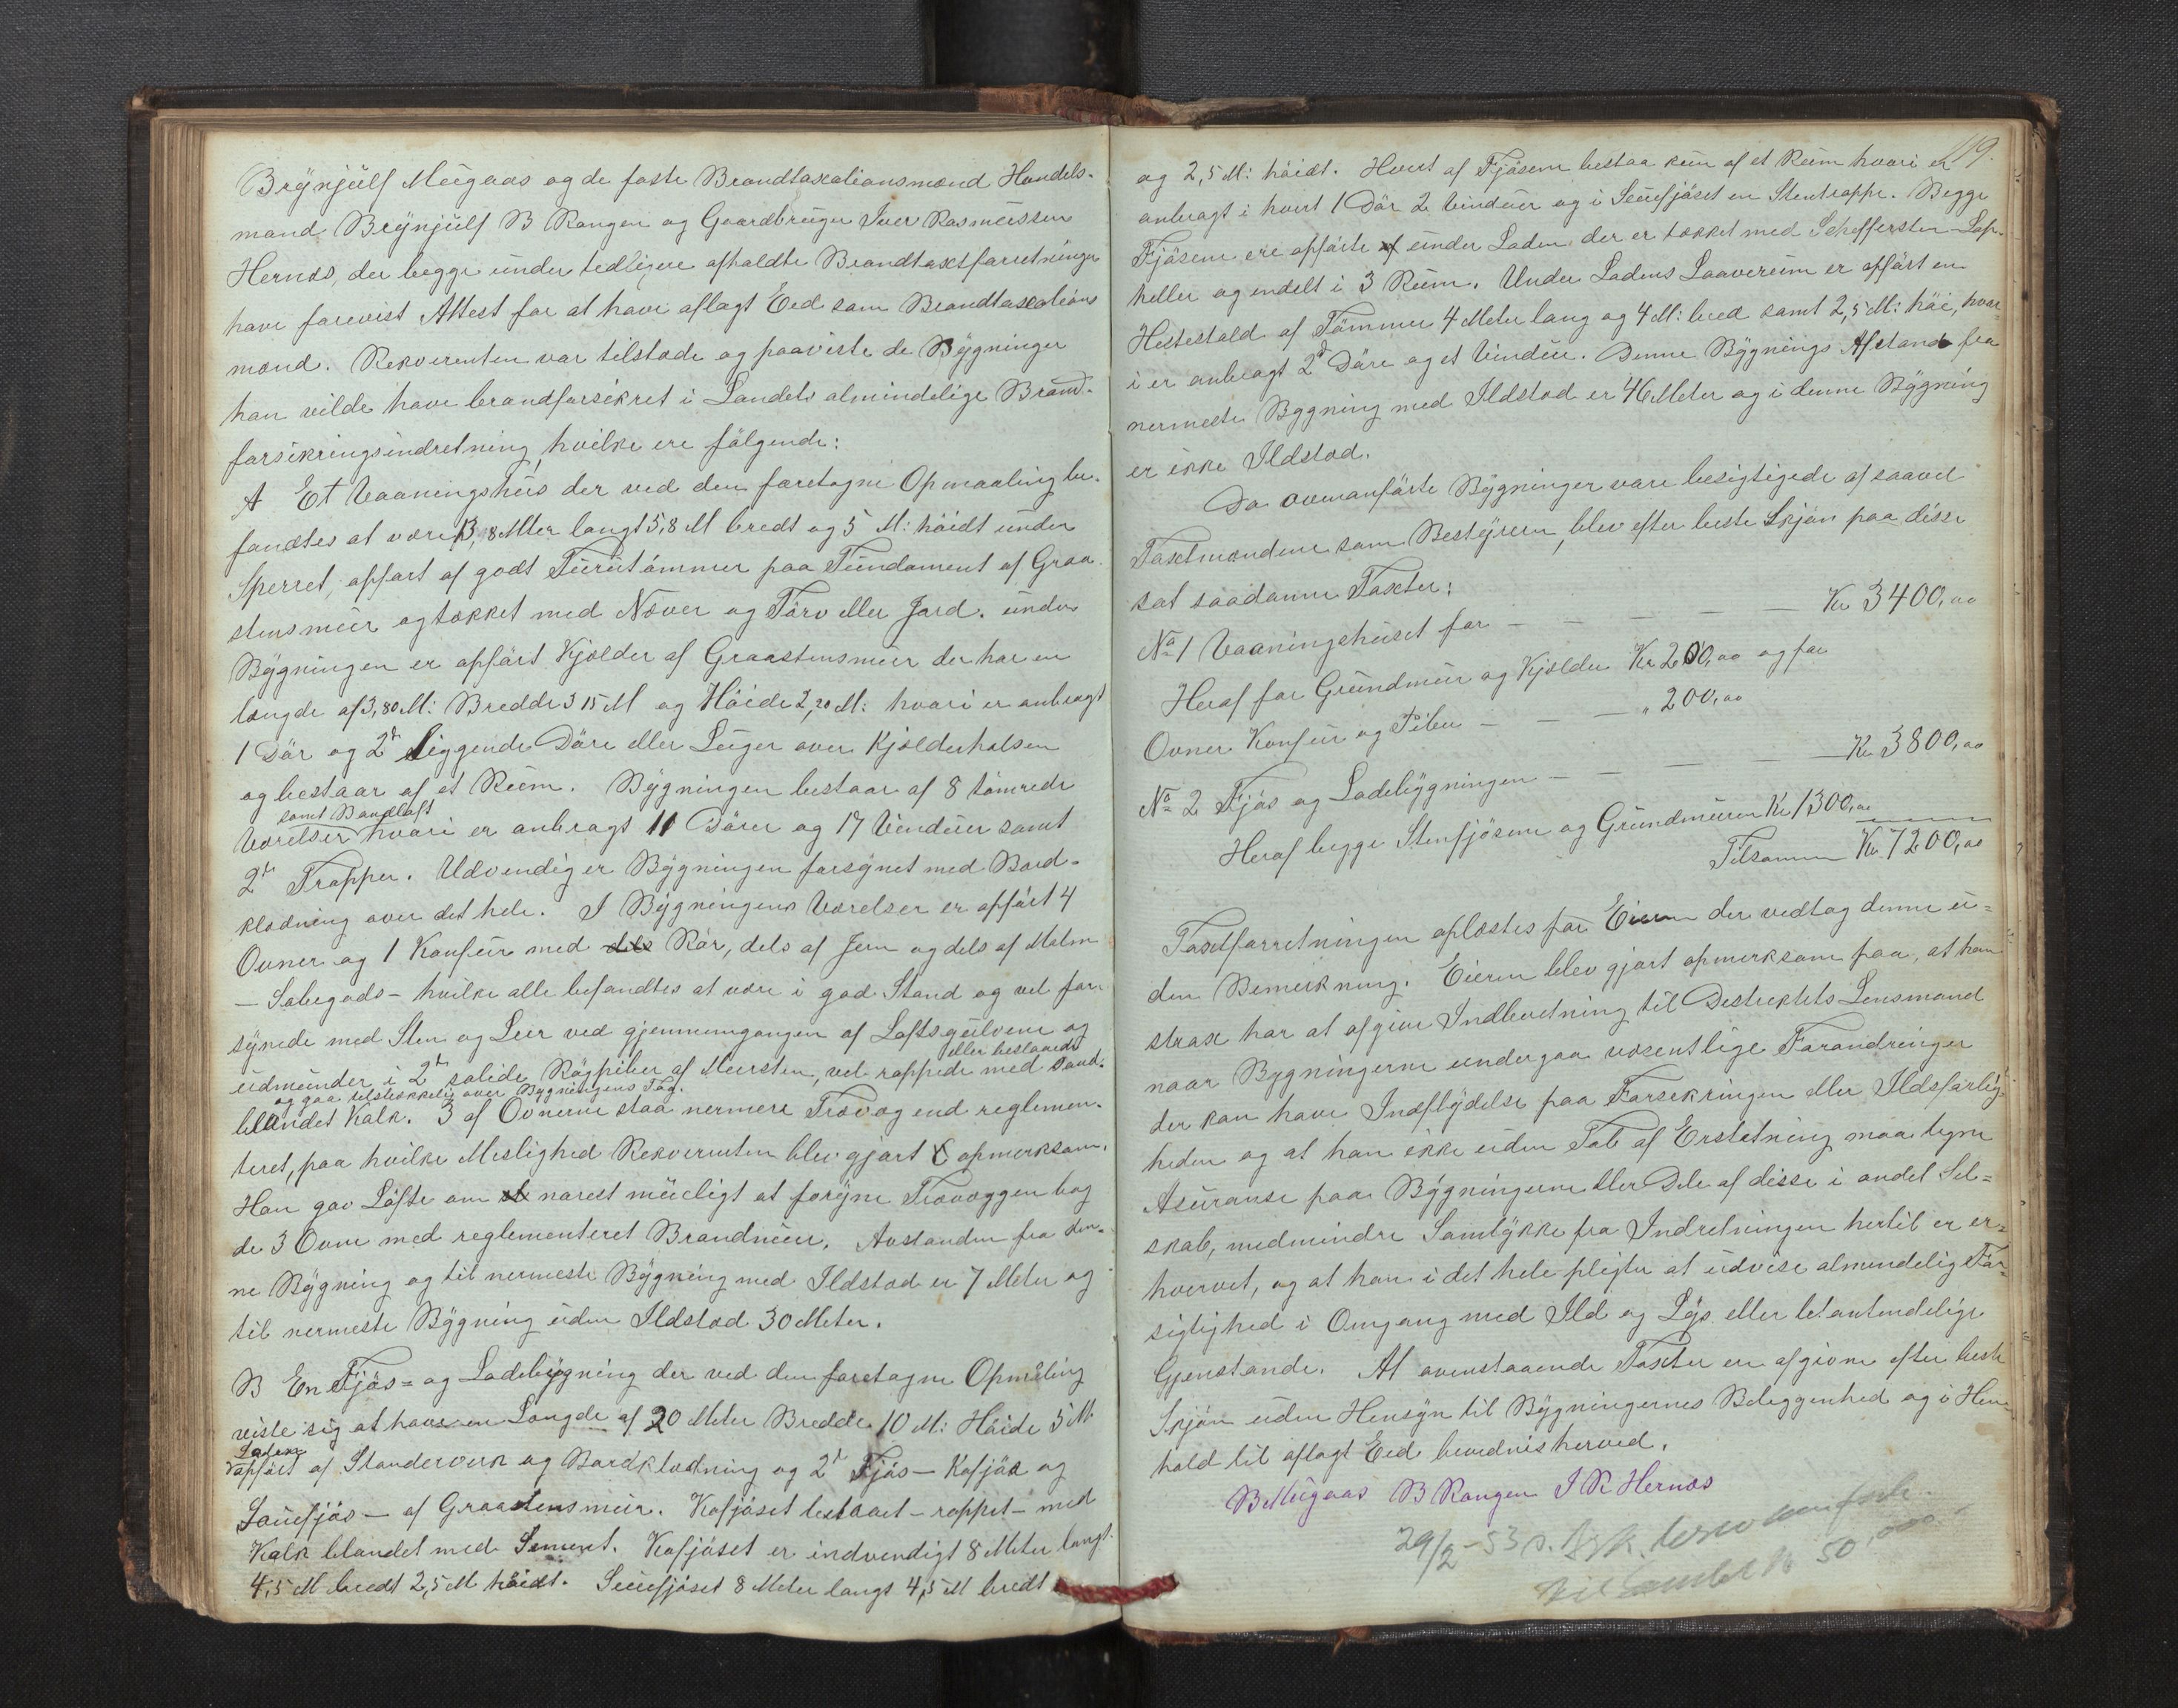 Brynjulf Mügaas og de faste Brandtaxationsmænd Handels-
mand Brynjulf B Rangen og Gaardbruger Iver Rasmussen
Hernæs, der begge under tedligere afholdte Brandtaxtforretninger
have forevist Attest for at have aflagt Eed som Brandtaxations
mænd. Rekverenten var tilstæde og paaviste de Bygninger
han vilde have brandforsikret i Landets almindelige Brand-
forsikringsindretning, hvilke ere følgende:
A Et Vaaningshus der ved den foretagne Opmaaling be-
fandtes at være 13,8 Mter langt 5,8 M bredt og 5 M: høidt under
Sperret, opført af godt Furutømmer paa Fundament af Graa-
stensmur og tækket med Næver og Tørv eller Jord. under
Bygningen er opført Kjælder af Graastensmur der har en
længde af 3,80 M: Bredde 3 15 M og Høide 2,20 M: hvori er anbragt
1 Dør og 2de liggende Døre eller Luger over Kjælderhalsen
og bestaar af et Rum. Bygningen bestaar af 8 tømrede
samt Bandlaft
Værelser hvori er anbragt 11 Dører og 17 Vinduer samt
2de Trapper. Udvendig er Bygningen forsynet med Bord-
klædning over det hele. I Bygningens Værelser er opført 4
Ovner og 1 Komfur med dels Rør, dels af Jern og dels af Malm
- Støbegods - hvilke alle befandtes at være i god Stand og vel for-
synede med Sten og Leer ved gjennemgangen af Loftsgulvene og
eller beslaaede
udmunder i 2de solide Røgpiber af Mursten, vel rappede med Sand-
og gaa tilstrækkelig over Bygningens Tag.
blandet Kalk. 3 af Ovnerne staa nermere Trævæg end reglemen-
teret, paa hvilke Mislighed Rekverenten blev gjort opmerksom.
Han gav Løfte om at narest mueligt at forsyne Trævæggen bag
de 3 Ovne med reglementeret Brandmur. Avstanden fra den-
ne Bygning og til nermeste Bygning med Ildstad er 7 Meter og
til nermeste Bygning uden Ildstad 30 Meter.
B En Fjøs- og Ladebygning der ved den foretagne Opmåling
viste sig at have en Længde af 20 Meter Bredde 10 M: Høide 5 M.
Laden
opført af Standerverk og Bordklædning og 2de Fjøs - Kofjøs og
Sauefjøs - af Graastensmur. Kofjøset beslaaet - rappet - med
Kalk blandet med Sement. Kofjøset er indvendigt 8 Meter langt
4,5 M bredt 2,5 M høidt. Sauefjøset 8 Meter langt 4,5 M bredt
119.
og 2,5 M: høidt. Hvert af Fjøsene bestaa kun af et Rum hvori er
anbragt i hvert 1 Dør 2 Vinduer og i Sauefjøset en Stentrappe. Begge
Fjøsene ere opførte af under Laden der er tækket med Sheffersten Lap-
heller og endelt i 3 Rum. Under Ladens Laaverum er opført en
Hestestald af Tømmer 4 Meter lang og 4 M: bred samt 2,5 M: høi, hvor-
i er anbragt 2de Døre og et Vindue. Denne Bygnings Afstand fra
nermeste Bygning med Ildstad er 46 Meter og i denne Bygning
er ikke Ildstad.
Da ovenanførte Bygninger vare besigtigede af saavel
Taxtmændene som Bestyreren, blev efter beste Skjøn paa disse
sat saadanne Taxter:
No 1 Vaaningshuset for - - - - - Kr 3400,00
Heraf for Grundmur og Kjælder Kr 200,00 og for
Ovner Komfur og Piber - - - " 200,00
No 2 Fjøs og Ladebygningen - - - - - Kr 3800,00
Heraf begge Stenfjøsene og Grundmuren Kr 1300,00
Tilsamen Kr 7200,00
Taxtforretningen oplæstes for Eieren der vedtog denne u-
den Bemerkning. Eieren blev gjort opmerksom paa, at han
strax har at afgive Indberetning til Destriktets Lensmand
naar Bygningerne undergaa væsentlige Forandringer
der kan have Indflydelse paa Forsikringen eller Ildsfarlig-
heden og at han ikke uden Tab af Erstatning maa tegne
Asuranse paa Bygningerne eller Dele af disse i andet Sel-
skab, medmindre Samtykke fra Indretningen hertil er er-
hvervet, og at han i det hele plejter at udvise almindelig For-
sigtighed i Omgang med Ild og Lys eller letantendelige
Gjenstande. At ovenstaaende Taxter ere afgivne efter beste
Skjøn uden Hensyn til Bygningernes Beliggenhed og i Hen-
hold til aflagt Eed bevidnes herved.
B Mugaas B Rangen I R Hernæs
29/2-53
50,000